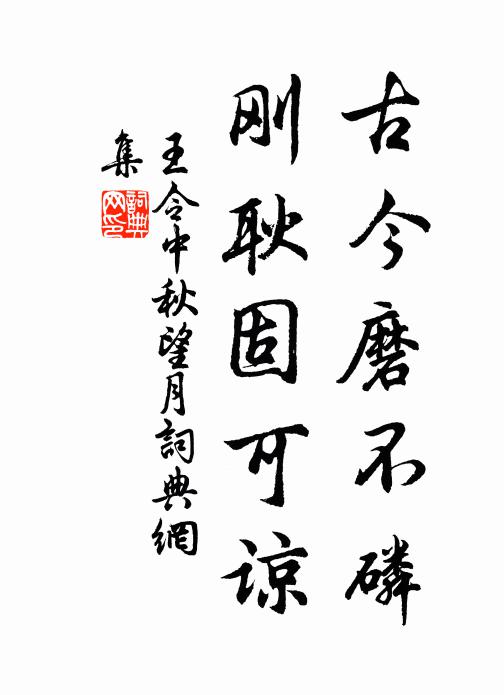 古今磨不磷
刚耿固可谅
王令中秋望月詞典網
集
詞典
网印